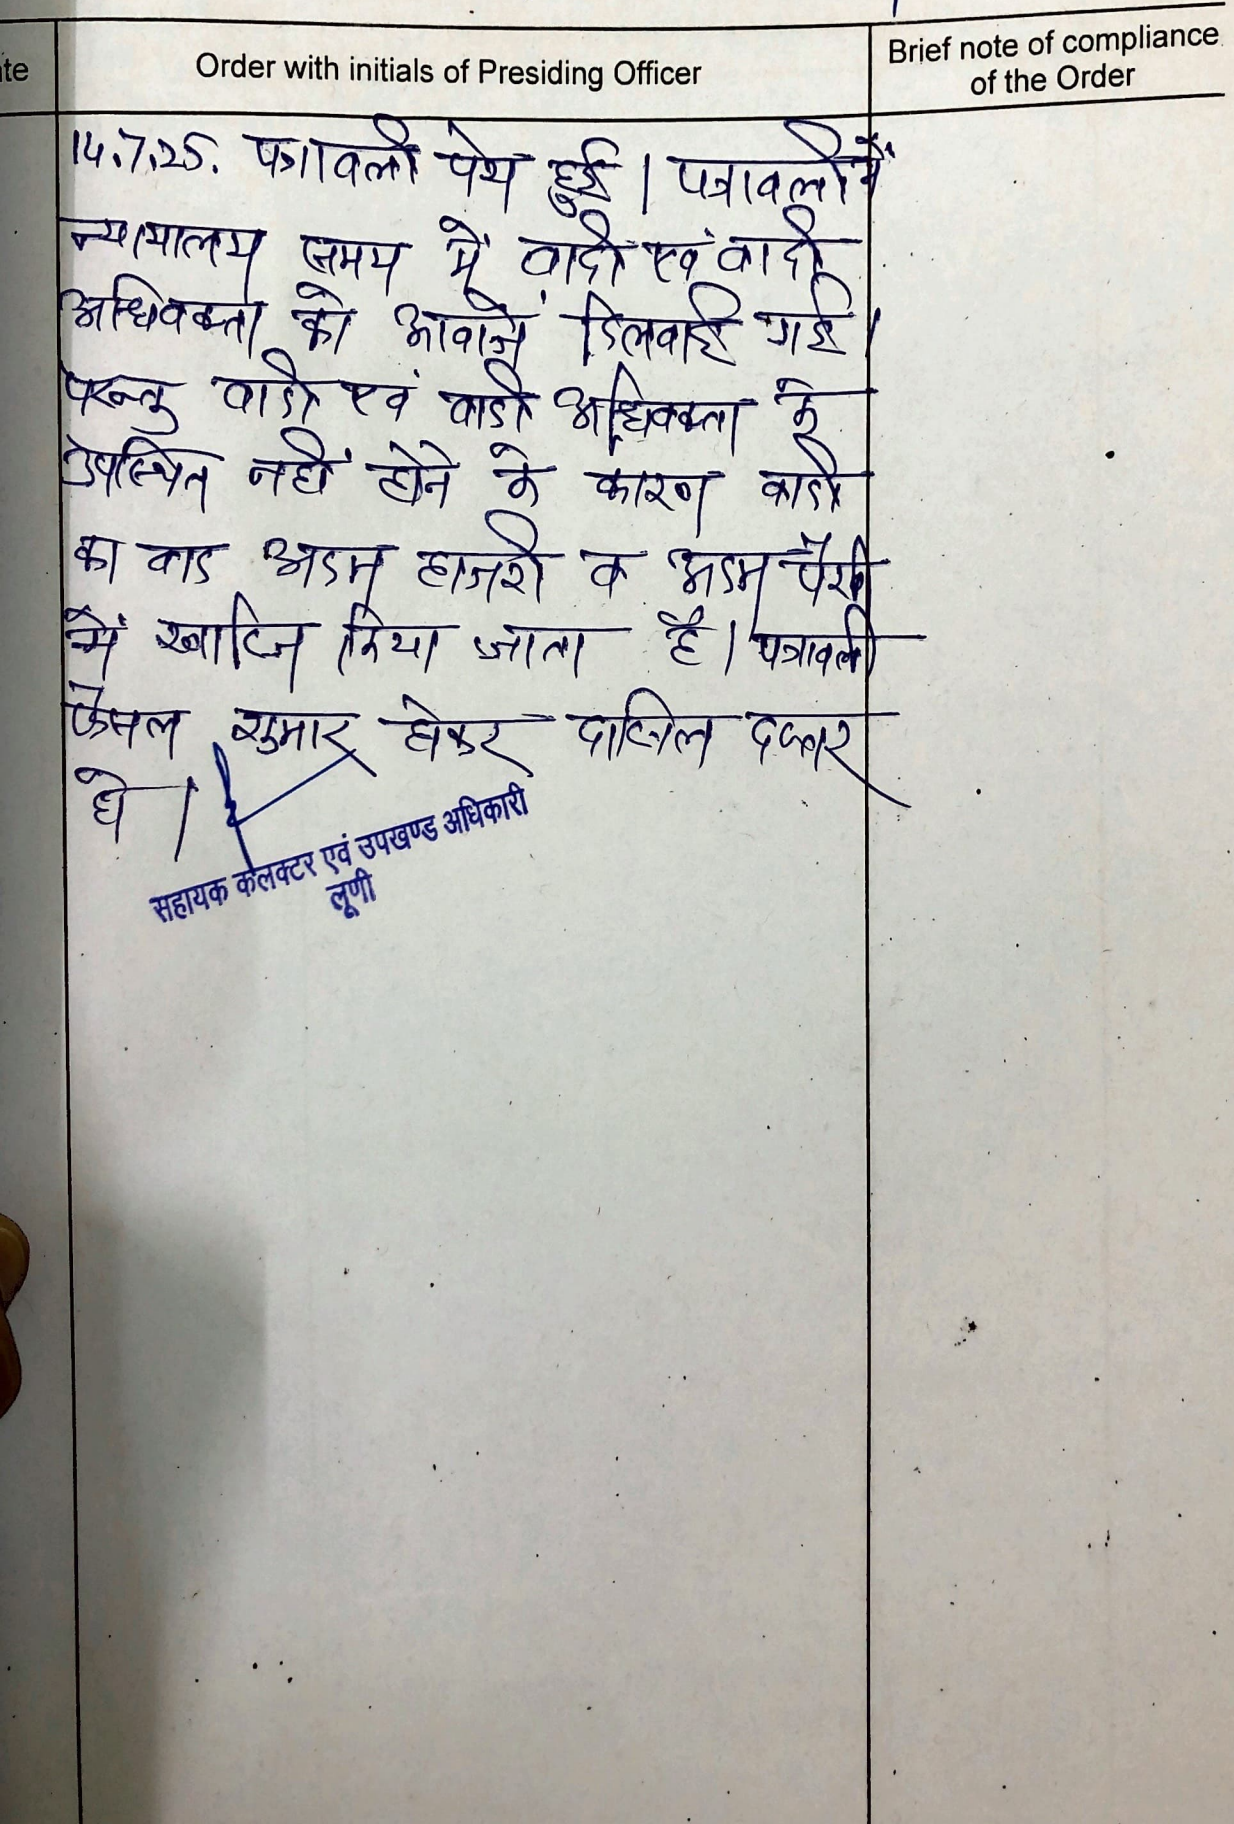 te
Order with initials of Presiding Officer
Brief note of compliance
of the Order
14.7.25. पत्रावली पेश हुई। पत्रावली में
न्यायालय समय में वादी एवं वादी
अधिवक्ता को आवाजें दिलवाई गई।
परन्तु वादी एवं वादी अधिवक्ता के
उपस्थित नहीं होने के कारण वादी
का वाद अदम हाजरी व अदम पैरवी
में खारिज किया जाता है। पत्रावली
फैसल शुमार होकर दाखिल दफ्तर
हो।
सहायक कलक्टर एवं उपखण्ड अधिकारी
लूणी